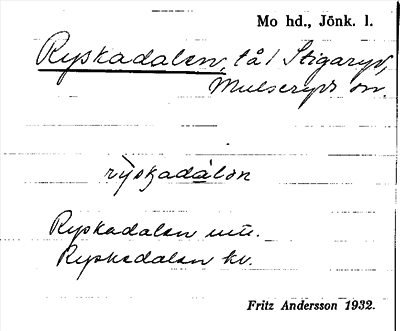 Mo hd., Jönk. l.
Ryskadalen, tå i Stigaryd,
Mulseryds sn.
rỳskadàlən
Ryskadalen uu.
Ryskedalen kv.
Fritz Andersson 1932.